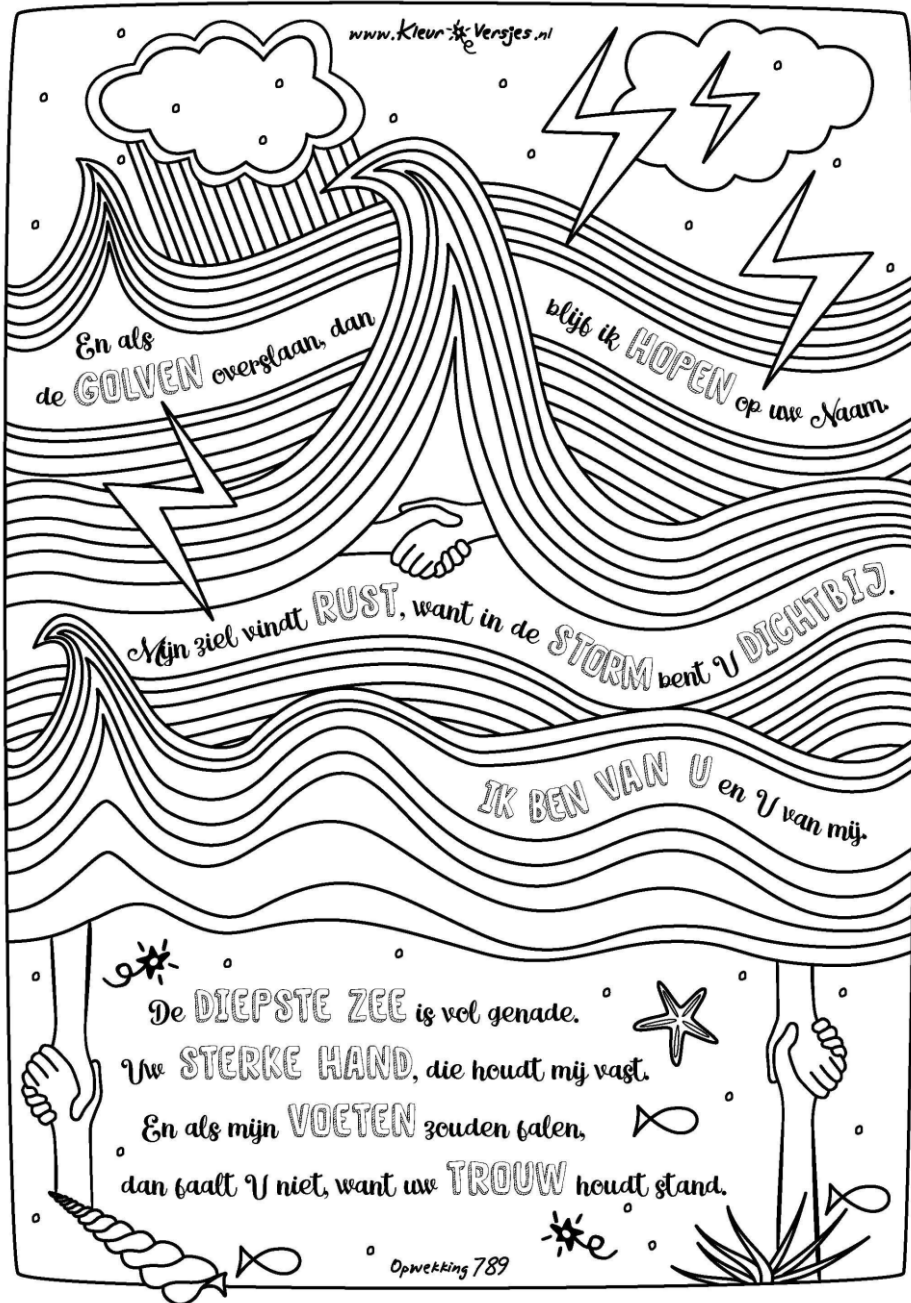 www.Kleur e Versjes.nl
En als
de GOLVEN overslaan, dan
blijf ik HOPEN op uw Naam.
Mijn ziel vindt RUST, want in de STORM bent U DICHTBIJ.
IK BEN VAN U en U van mij.
De DIEPSTE ZEE is vol genade.
Uw STERKE HAND, die houdt mij vast.
En als mijn VOETEN zouden falen,
dan faalt U niet, want uw TROUW houdt stand.
Opwekking 789